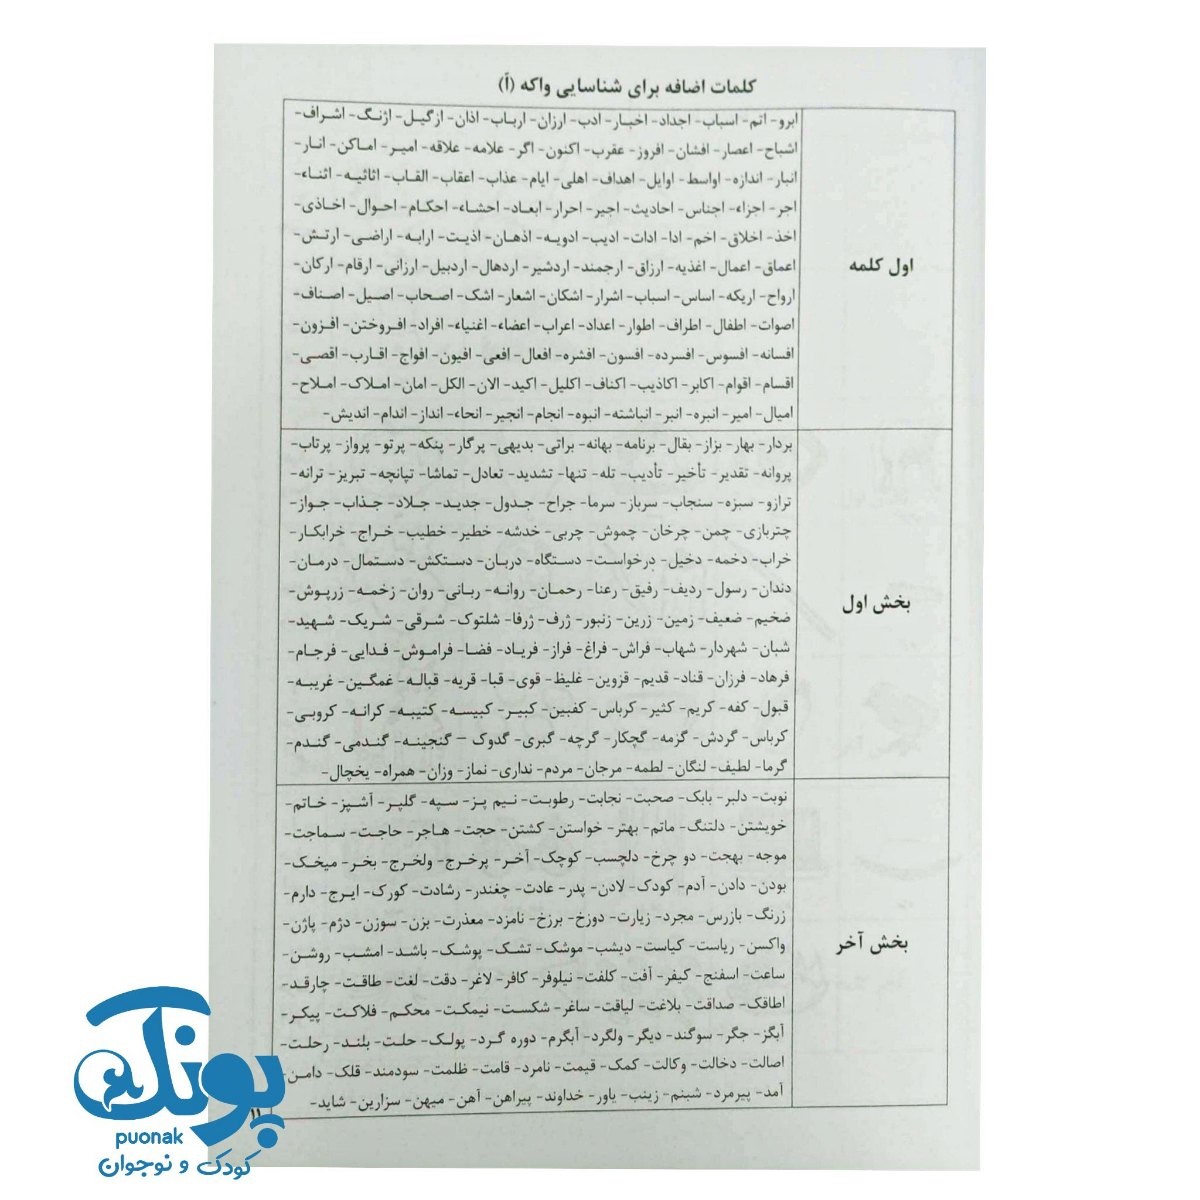 کلمات اضافه برای شناسایی واکه (اَ)
اول کلمه
ابرو- اتم- اسباب- اجداد- اخبـار- ادب- ارزان- اربـاب- اذان- ازگیـل- اژنـگ- اشراف-
اشباح- اعصار- افشان- افروز- عقرب- اکنون- اگر- علامه- علاقه- امیـر- امـاکن- انـار-
انبار- اندازه- اواسط- اوایل- اهداف- اهلی- ایام- عذاب- اعقاب- القـاب- اثاثیـه- اثنـاء-
اجر- اجزاء- اجناس- احادیـث- اجیـر- احرار- ابعـاد- احشـاء- احکـام- احـوال- اخـاذی-
اخذ- اخلاق- اخم- ادا- ادات- ادیب- ادویـه- اذهـان- اذیـت- ارابـه- اراضـی- ارتـش-
اعماق- اعمال- اغذیه- ارزاق- ارجمند- اردشیر- اردهال- اردبیل- ارزانی- ارقام- ارکان-
ارواح- اریکه- اساس- اسباب- اشرار- اشکان- اشعار- اشک- اصـحاب- اصـیل- اصـناف-
اصوات- اطفال- اطراف- اطوار- اعداد- اعراب- اعضاء- اغنیاء- افراد- افـروختن- افـزون-
افسانه- افسوس- افسرده- افسون- افشره- افعال- افعی- افیون- افواج- اقـارب- اقصـی-
اقسام- اقوام- اکابر- اکاذیب- اکناف- اکلیل- اکید- الان- الکل- امان- امـلاک- امـلاح-
امیال- امیر- انبره- انبر- انباشته- انبوه- انجام- انجیر- انحاء- انداز- اندام- اندیش-
بخش اول
بردار- بهار- بزاز- بقال- برنامه- بهانه- براتی- بدیهی- پرگار- پنکه- پرتو- پرواز- پرتاب-
پروانه- تقدیر- تأخیر- تأدیب- تله- تنها- تشدید- تعادل- تماشا- تپانچه- تبریز- ترانه-
ترازو- سبزه- سنجاب- سرباز- سرما- جراح- جـدول- جدیـد- جـلاد- جـذاب- جـواز-
چتربازی- چمن- چرخان- چموش- چربی- خدشه- خطیر- خطیب- خـراج- خرابکـار-
خراب- دخمه- دخیل- درخواسـت- دسـتگاه- دربـان- دسـتکش- دسـتمال- درمـان-
دندان- رسول- ردیف- رفیق- رعنا- رحمـان- روانـه- ربـانی- روان- زخمـه- زرپـوش-
ضخیم- ضعیف- زمین- زرین- زنبور- ژرف- ژرفا- شلتوک- شـرقی- شـریک- شـهید-
شبان- شهردار- شهاب- فراش- فراغ- فراز- فریـاد- فضـا- فرامـوش- فـدایی- فرجـام-
فرهاد- فرزان- قناد- قدیم- قزوین- غلیظ- قوی- قبا- قریه- قبالـه- غمگـین- غریبـه-
قبول- کفه- کریم- کثیر- کرباس- کفبین- کبیـر- کبیسـه- کتیبـه- کرانـه- کروبـی-
کرباس- گردش- گزمه- گچکار- گرچه- گبری- گدوک – گنجینـه- گنـدمی- گنـدم-
گرما- لطیف- لنگان- لطمه- مرجان- مردم- نداری- نماز- وزان- همراه- یخچال-
بخش آخر
نوبت- دلبر- بابک- صحبت- نجابت- رطوبـت- نـیم پـز- سـپه- گلپـر- آشـپز- خـاتم-
خویشتن- دلتنگ- ماتم- بهتر- خواستن- کشتن- حجت- هـاجر- حاجـت- سـماجت-
موجه- بهجت- دو چرخ- دلچسب- کوچک- آخـر- پرخـرج- ولخـرج- بخـر- میخـک-
بودن- دادن- آدم- کودک- لادن- پدر- عادت- چغندر- رشادت- کورک- ایـرج- دارم-
زرنگ- بازرس- مجرد- زیارت- دوزخ- برزخ- نامزد- معذرت- بزن- سوزن- دژم- پاژن-
واکسن- ریاست- کیاست- دیشب- موشک- تشک- پوشک- باشد- امشب- روشن-
ساعت- اسفنج- کیفر- آفت- کلفت- نیلوفر- کافر- لاغر- دقت- لغت- طاقت- چارقـد-
اطاقک- صداقت- بلاغت- لیاقت- ساغر- شکست- نیمکت- محکـم- فلاکـت- پیکـر-
آبگز- جگر- سوگند- دیگر- ولگرد- آبگرم- دوره گـرد- پولـک- حلـت- بلنـد- رحلـت-
اصالت- دخالت- وکالت- کمک- قیمت- نامرد- قامت- ظلمت- سودمند- قلک- دامـن-
آمد- پیرمرد- شبنم- زینب- یاور- خداوند- پیراهن- آهن- میهن- سزارین- شاید-
۱۱
پونک
puonak
کودک و نوجوان